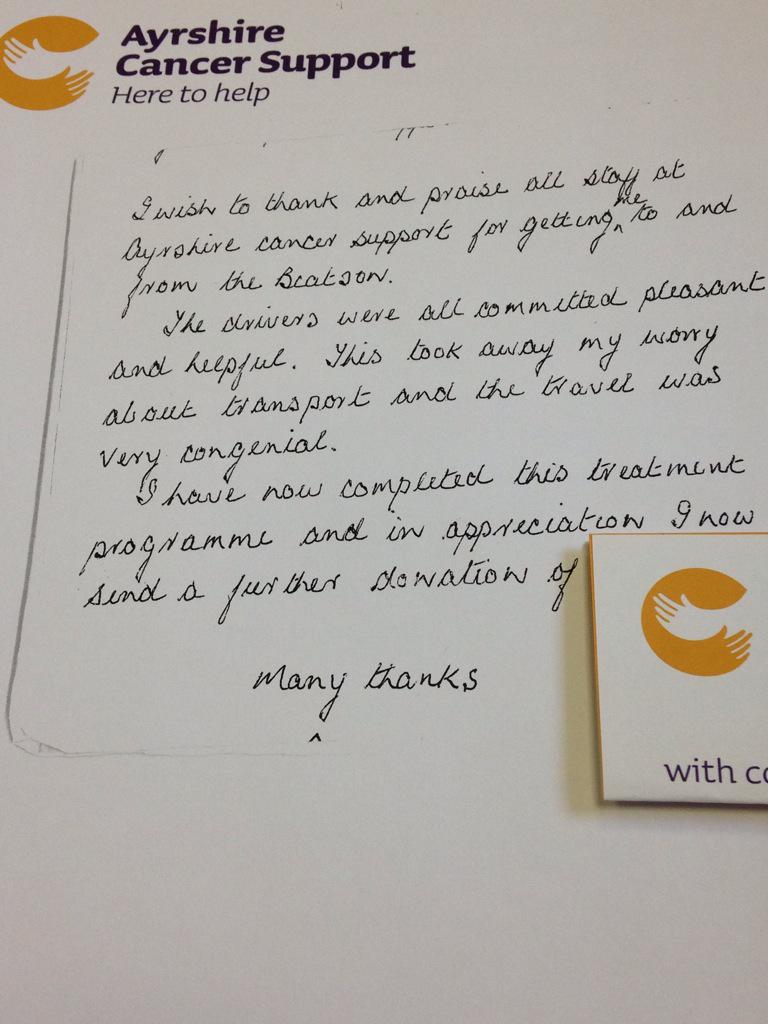 Ayrshire
Cancer Support
Here to help
I wish to thank and praise all staff at
Ayrshire cancer support for getting me to and
from the Beatson.
The drivers were all committed pleasant
and helpful. This took away my worry
about transport and the travel was
very congenial.
I have now completed this treatment
programme and in appreciation I now
send a further donation of
Many thanks
with co